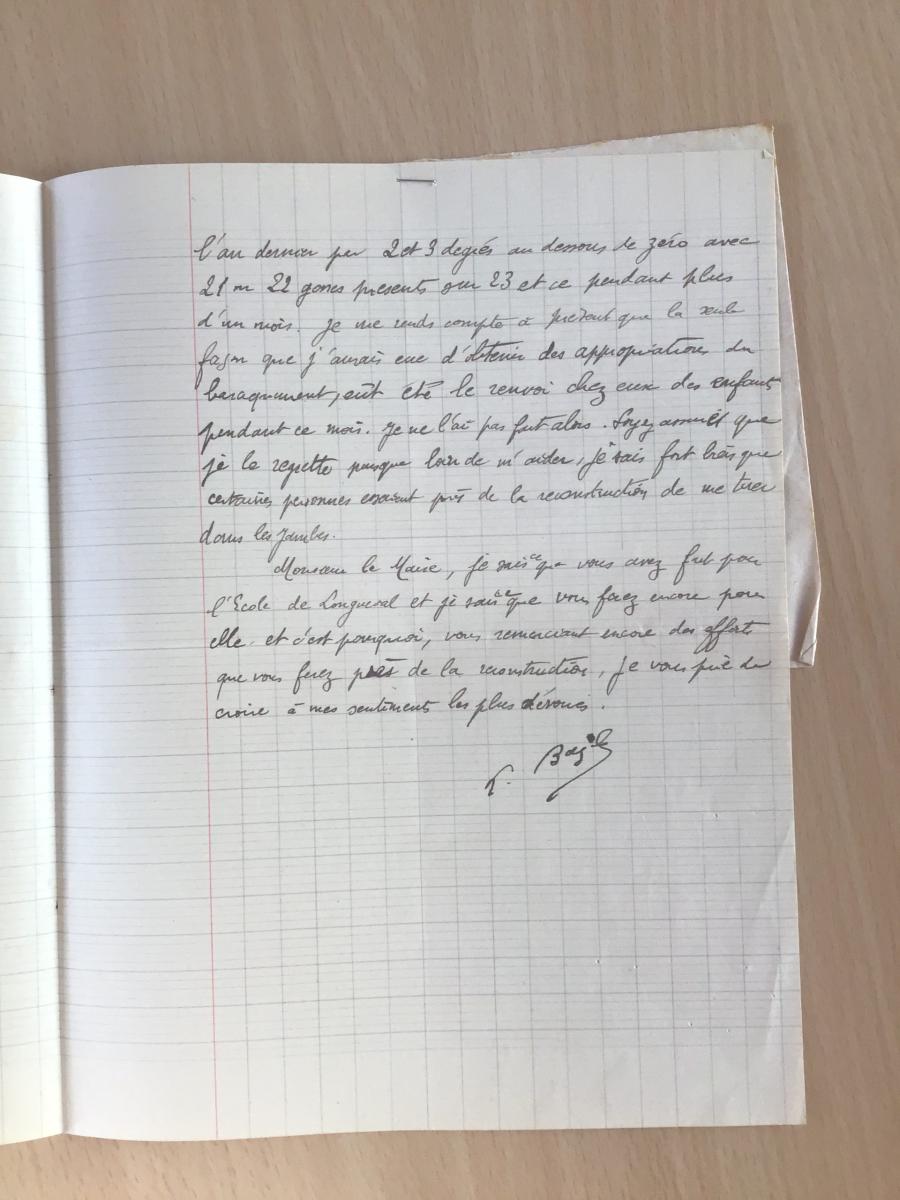 l'an dernier par 2 et 3 degrés au dessous de zéro avec
21 ou 22 gones présents sur 23 et ce pendant plus
d'un mois. Je me rends compte à présent que la seule
façon que j'aurais eue d'obtenir des appropriations du
baraquement, eût été le renvoi chez eux des enfants
pendant ce mois. Je ne l'ai pas fait alors. Soyez assuré que
je le regrette puisque loin de m'aider, je sais fort bien que
certaines personnes essaient près de la reconstruction de me tirer
dans les jambes.
Monsieur le Maire, je sais ce que vous avez fait pour
l'Ecole de Longueval et je sais ce que vous ferez encore pour
elle. et c'est pourquoi, vous remerciant encore des efforts
que vous ferez près de la reconstruction, je vous prie de
croire à mes sentiments les plus dévoués.